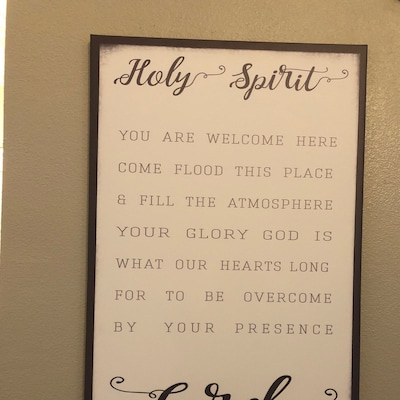 Holy Spirit
YOU ARE WELCOME HERE
COME FLOOD THIS PLACE
& FILL THE ATMOSPHERE
YOUR GLORY GOD IS
WHAT OUR HEARTS LONG
FOR TO BE OVERCOME
BY YOUR PRESENCE